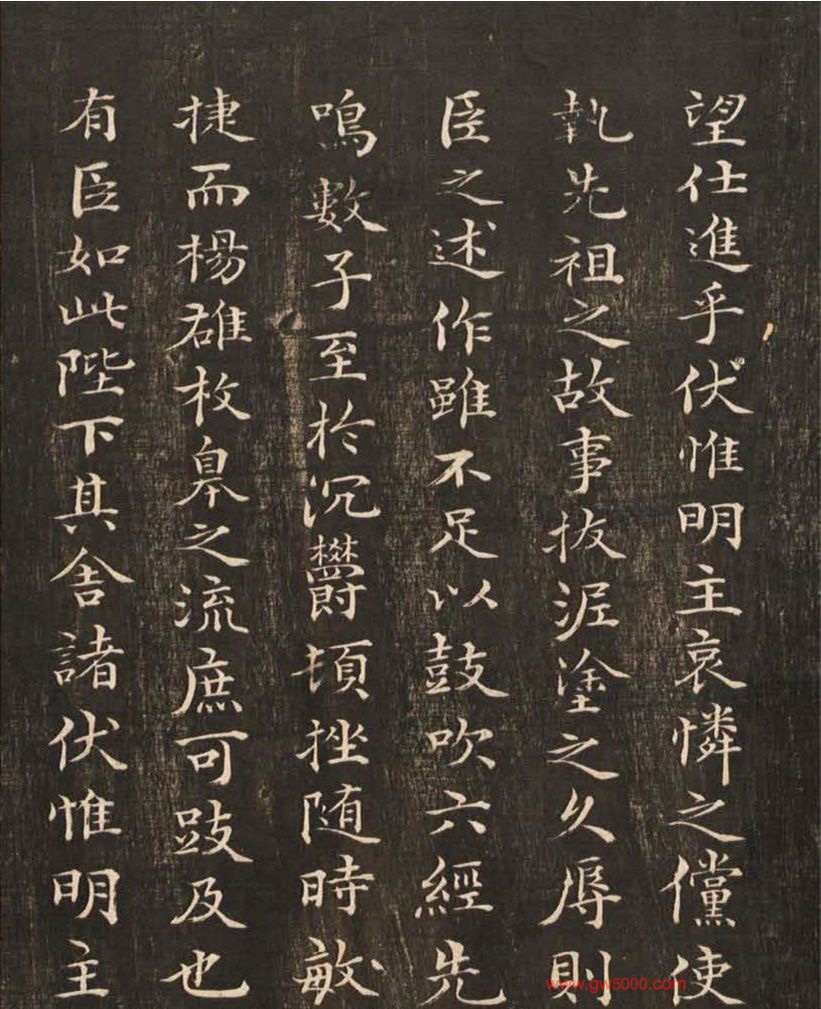 望仕進乎伏惟明主哀憐之儻使
執先祖之故事拔泥塗之久辱則
臣之述作雖不足以鼓吹六經先
鳴數子至於沉欝頓挫随時敏
捷而楊雄枚皋之流庶可跂及也
有臣如此陛下其舍諸伏惟明主
www.gw5000.com